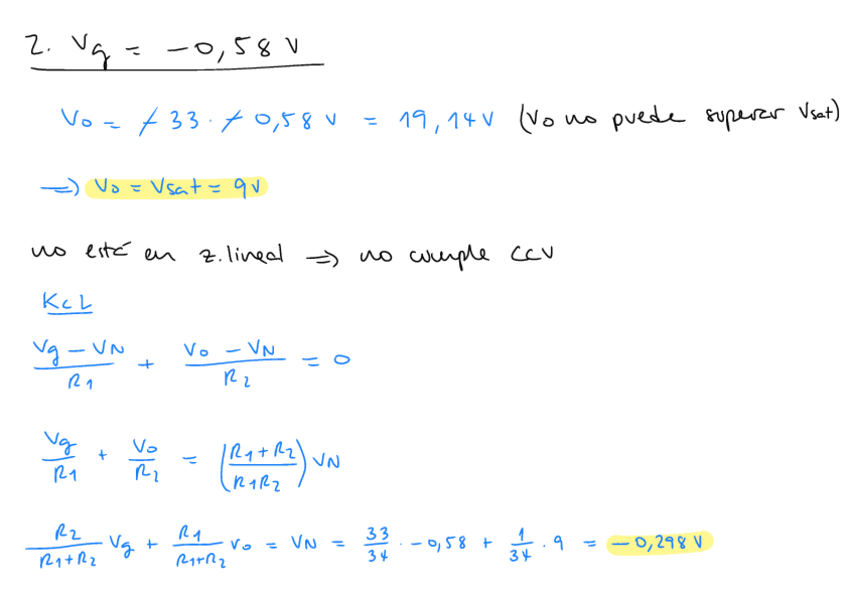 2. Vg = -0,58 V
Vo = -33 · -0,58 V = 19,14V (Vo no puede superar Vsat)
=> Vo = Vsat = 9V
no está en z.lineal => no cumple CCV
KCL
(Vg - VN)/R1 + (Vo - VN)/R2 = 0
Vg/R1 + Vo/R2 = ((R1+R2)/(R1R2)) VN
R2/(R1+R2) Vg + R1/(R1+R2) Vo = VN = 33/34 · -0,58 + 1/34 · 9 = -0,298 V